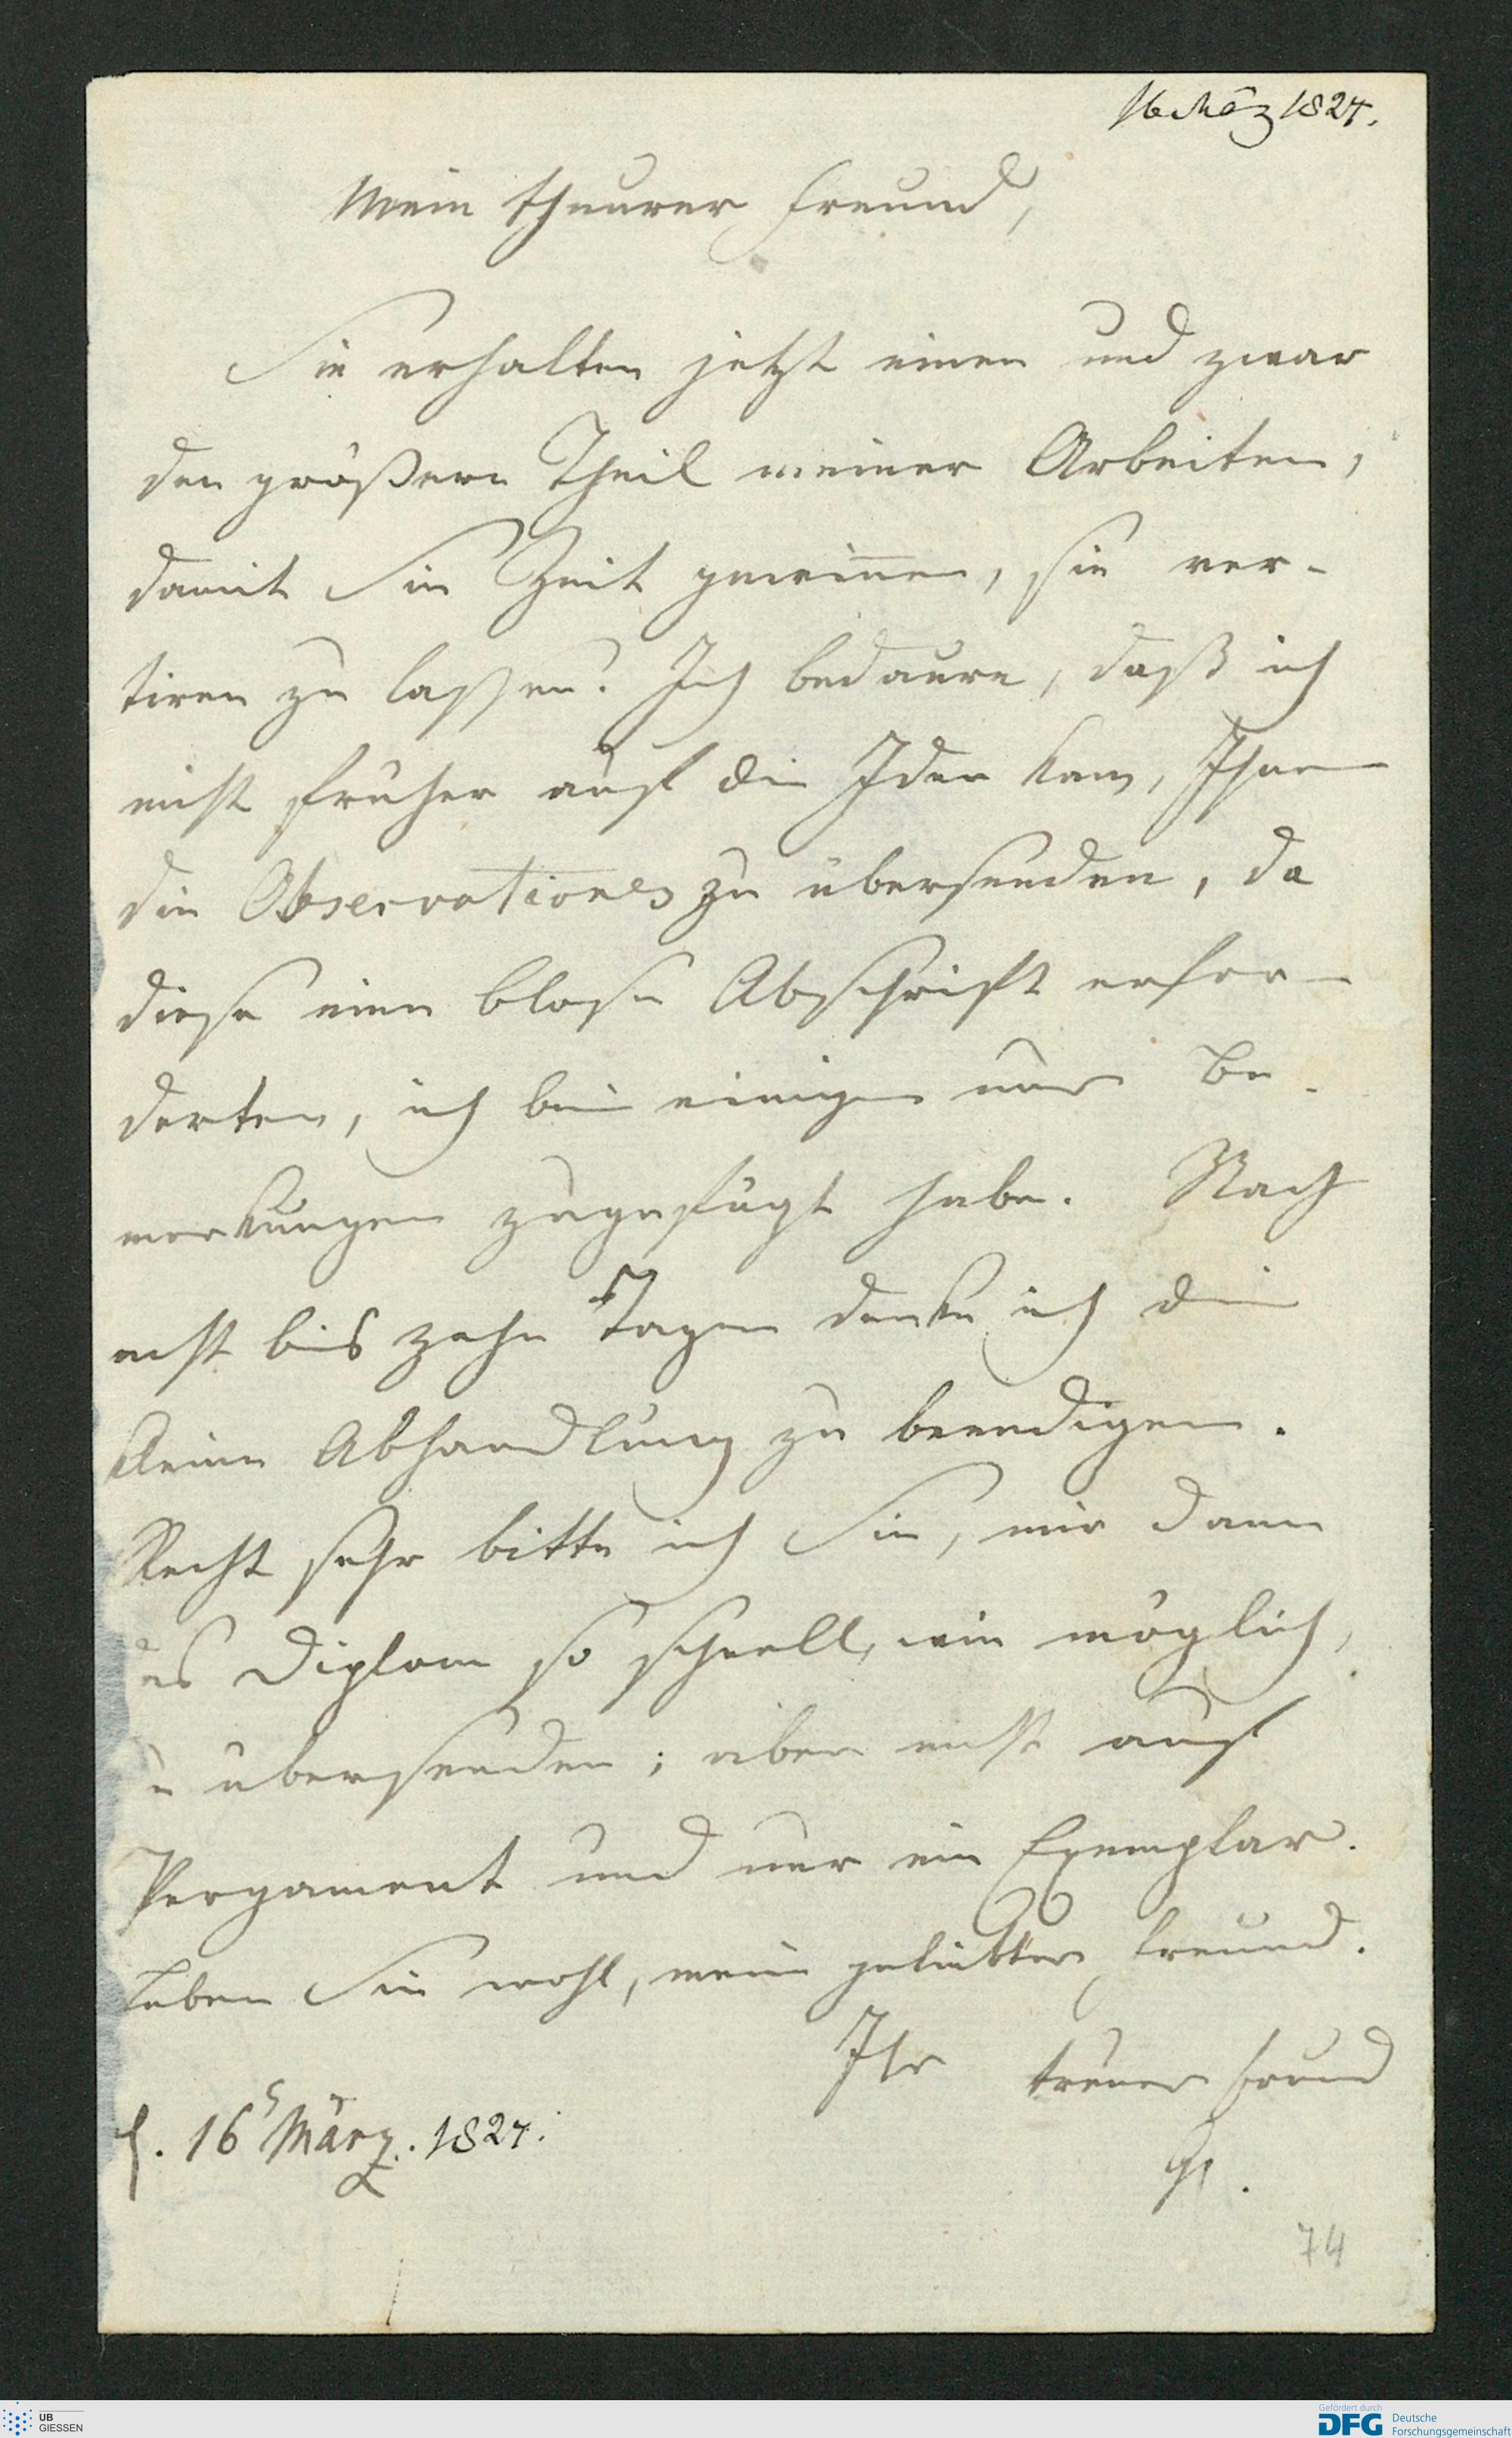 16 März 1827.
Mein theurer Freund,
Sie erhalten jetzt einen und zwar
den größern Theil meiner Arbeiten,
damit Sie Zeit gewinnen, sie ver-
tiren zu lassen. Ich bedaure, daß ich
nicht früher auf die Idee kam, Ihnen
die Observationes zu übersenden, da
diese eine blose Abschrift erfor-
derten, ich bei einigen nur Be-
merkungen zugefügt habe. Nach
acht bis zehn Tagen denke ich die
kleine Abhandlung zu beendigen.
Recht sehr bitte ich Sie, mir dann
das Diplom so schnell, wie möglich,
zu übersenden; aber nicht auf
Pergament und nur ein Exemplar.
Leben Sie wohl, mein geliebter Freund.
Ihr treuer Freund
16 März. 1827.
74
UB
GIESSEN
Gefördert durch
DFG Deutsche
Forschungsgemeinschaft